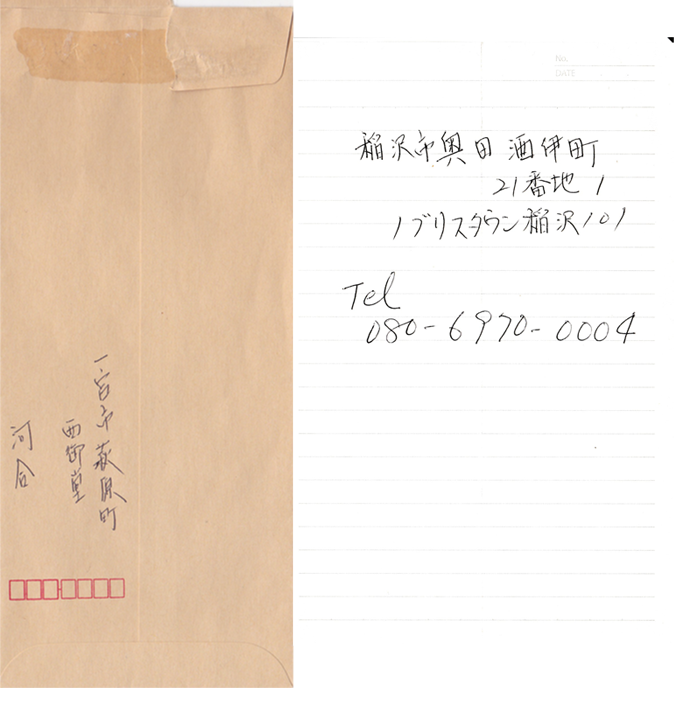 一宮市萩原町
西御堂
河合
No.
DATE
稲沢市奥田酒伊町
21番地1
ブリスタウン稲沢101
Tel
080-6970-0004